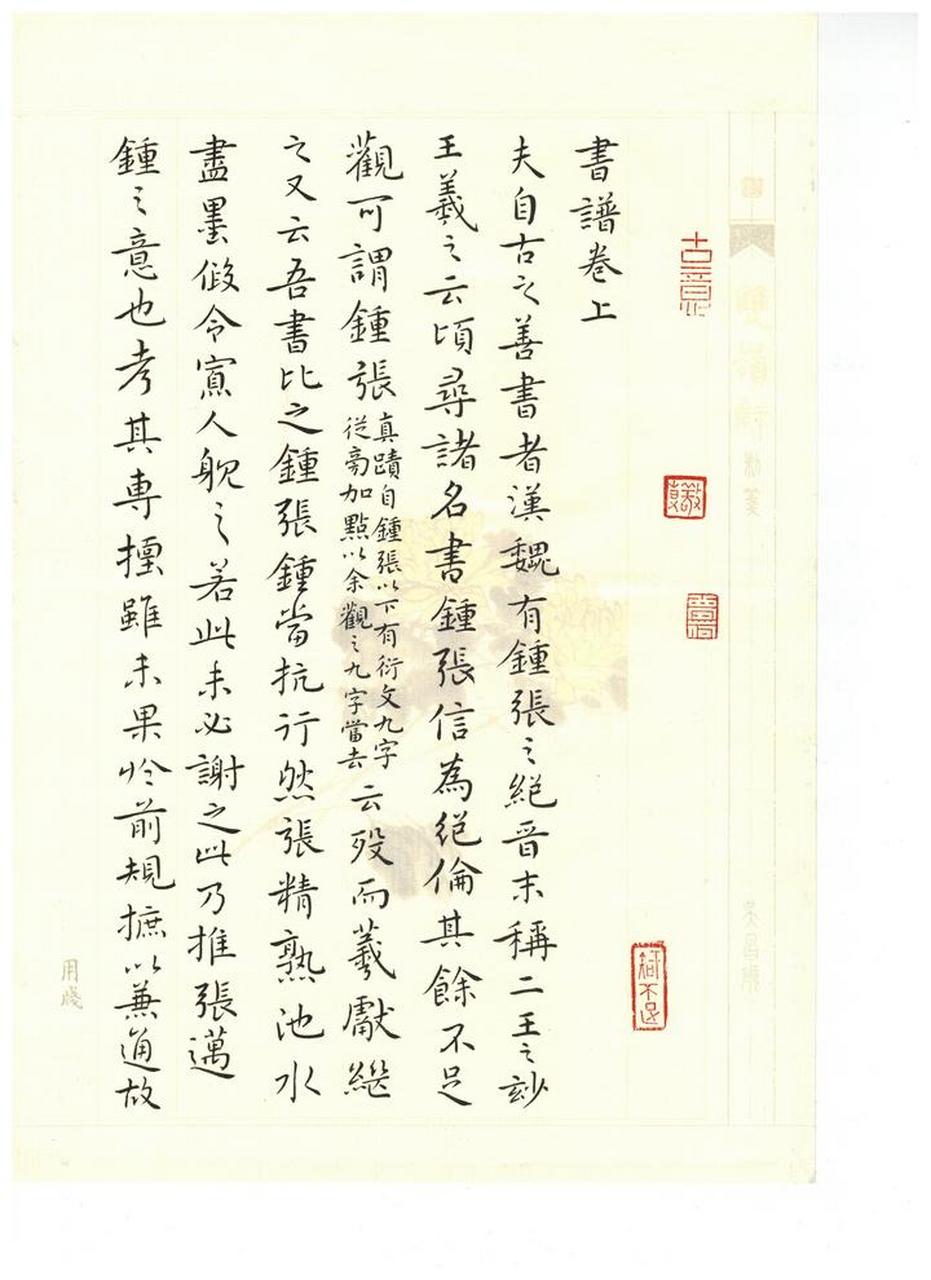 書譜卷上
夫自古之善書者漢魏有鍾張之絕晉末稱二王之妙
王羲之云頃尋諸名書鍾張信為絕倫其餘不足
觀可謂鍾張
真蹟自鍾張以下有衍文九字
從旁加點以余觀之九字當去
云歿而羲獻繼
之又云吾書比之鍾張鍾當抗行然張精熟池水
盡墨假令寡人躭之若此未必謝之此乃推張邁
鍾之意也考其專擅雖未果恊前規摭以兼通故
古意
知不足
用牋